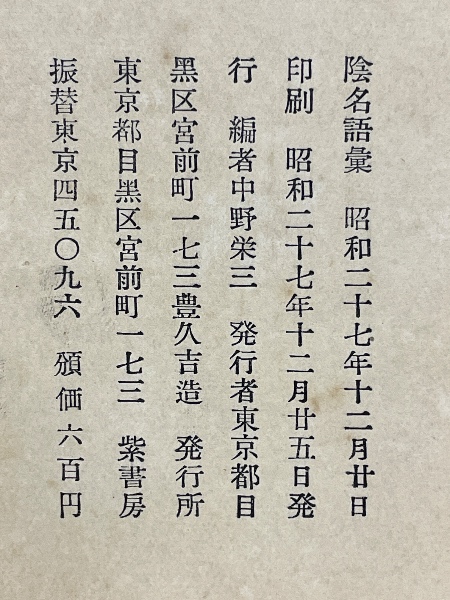 陰名語彙　昭和二十七年十二月廿日
印刷　昭和二十七年十二月廿五日発
行　編者中野栄三　発行者東京都目
黑区宮前町一七三豊久吉造　発行所
東京都目黑区宮前町一七三　紫書房
振替東京四五〇九六　頒価六百円